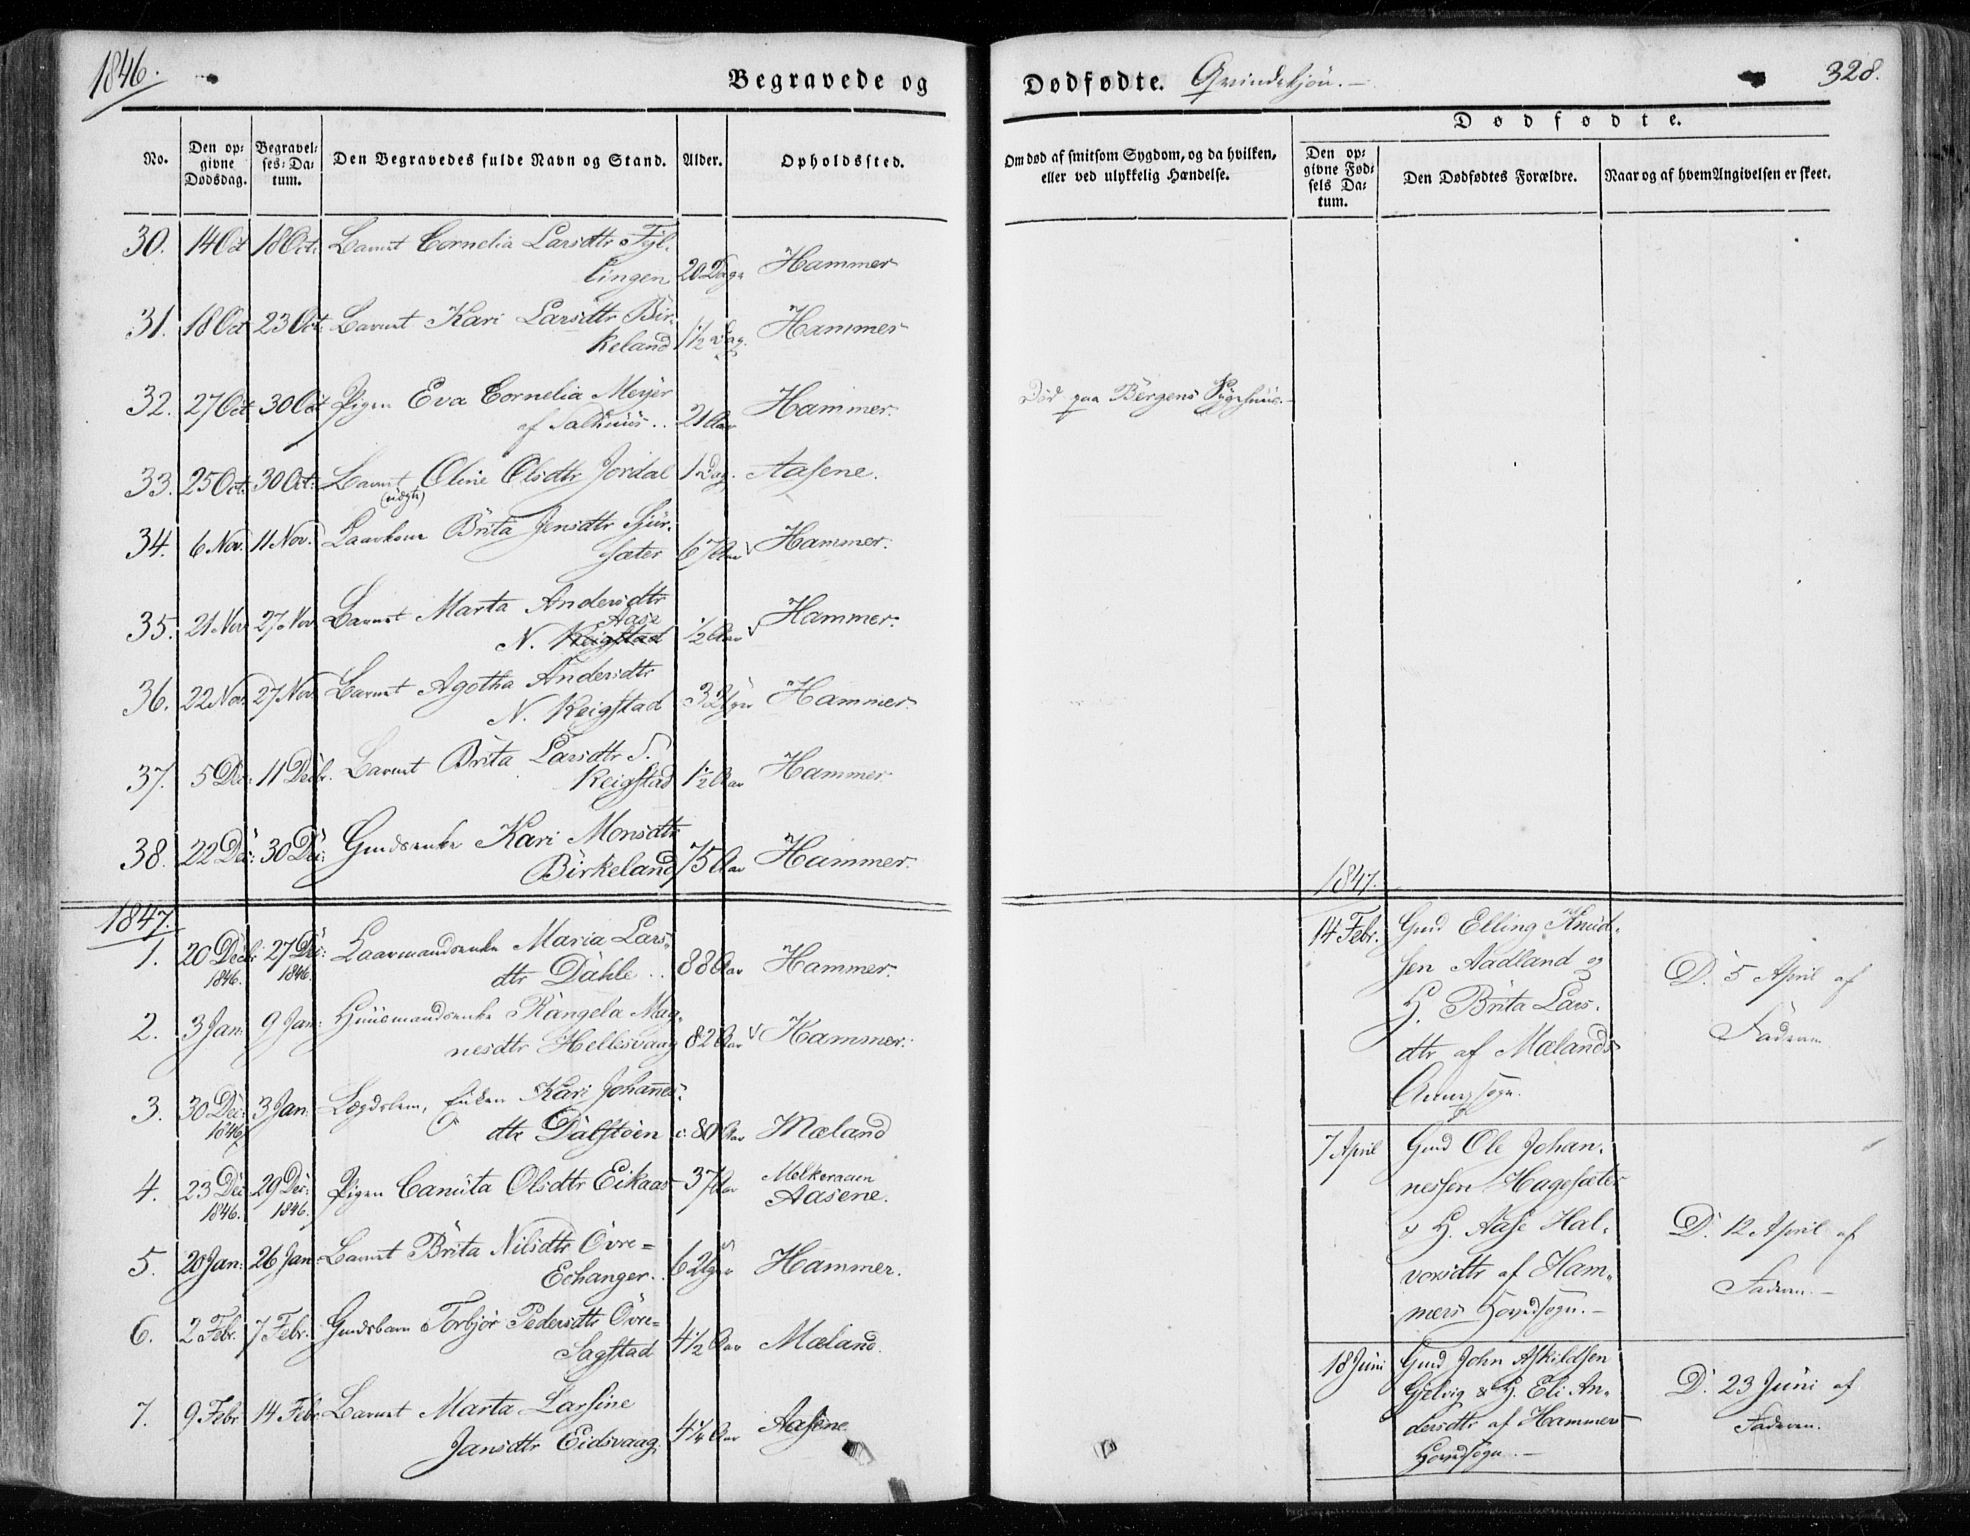 1846.
Begravede og
Dødfødte. Qvindekjön.-
328.
Dødfødte.
No.
Den op-
givne
Dødsdag.
Begravel-
ses-Da-
tum.
Den Begravedes fulde Navn og Stand.
Alder.
Opholdssted.
Om død af smitsom Sygdom, og da hvilken,
eller ved ulykkelig Hændelse.
Den op-
givne Fød-
sels Da-
tum.
Den Dødfødtes Forældre.
Naar og af hvem Angivelsen er skeet.
30. 14 Oct 18 Oct. Barnet Cornelia Larsdtr Fyl-
lingen 20 Dage Hammer
31. 18 Oct 23 Oct. Barnet Kari Larsdtr Bir-
keland 1½ Dag. Hammer
32. 27 Oct 30 Oct Pigen Eva Cornelia Meyer
af Salhuus.. 21 Aar Hammer.
Död paa Bergens Sygehuus.-
33. 25 Oct. 30 Oct. Barnet Oline Olsdtr Jordal 1 Dag. Aasene.
34. 6 Nov. 11 Nov. Brita Jensdtr
sæter 67 Aar Hammer.
35. 21 Nov 27 Nov Barnet Marta Andersdtr
Aase
N. Reigstad ½ Aar Hammer.
36. 22 Nov. 27 Nov. Barnet Agotha Andersdtr
N. Reigstad 3 Hammer.
37. 5 Dec. 11 Decbr. Barnet Brita Larsdtr S.
Reigstad 1½ Aar Hammer
38. 22 Dec: 30 Dec: Gmdsenke Kari Monsdtr
Birkeland 75 Aar Hammer.
1847.
1. 20 Decbr 27 Dec: Maria Lars-
1846. 1846. dtr Dahle.. 88 Aar Hammer.
2. 3 Jan: 9 Jan: Huusmandsenke Rangela Mag-
nesdtr Hellesvaag 82 Aar Hammer.
3. 30 Dec: 3 Jan: Lægdslem, Enken Kari Johannes-
1846 dtr Dalstöen c. 80 Aar Mæland
4. 23 Dec 29 Dec: Pigen Canuta Olsdtr Eikaas 37 Aar
1846. 1846. Aasene.
5. 20 Jan: 26 Jan Barnet Brita Nilsdtr Övre=
Echanger.. 6 Hammer.
6. 2 Febr. 7 Febr. Gmdsbarn Torbjör Pedersdtr Övre=
Sagstad 4½ Aar Mæland.
7. 9 Febr 14 Febr. Barnet Marta Larsine
Jansdtr Eidsvaag. 4¼ Aar Aasene
1847.
14 Febr. Gmd Elling Knud-
sen Aadland og
H. Brita Lars-
dtr af Mælands
Annexsogn.
D. 5 April af
Faderen
7 April Gmd Ole Johan-
nessen Hagesæter
o H. Aase Hal-
vorsdtr af Ham-
mers Hovedsogn.-
D. 12 April af
Faderen.-
18 Juni Gmd John Askildsen
Gjelvig & H. Eli An-
dersdtr af Hammers
Hovedsogn.-
D. 23 Juni af
Faderen.